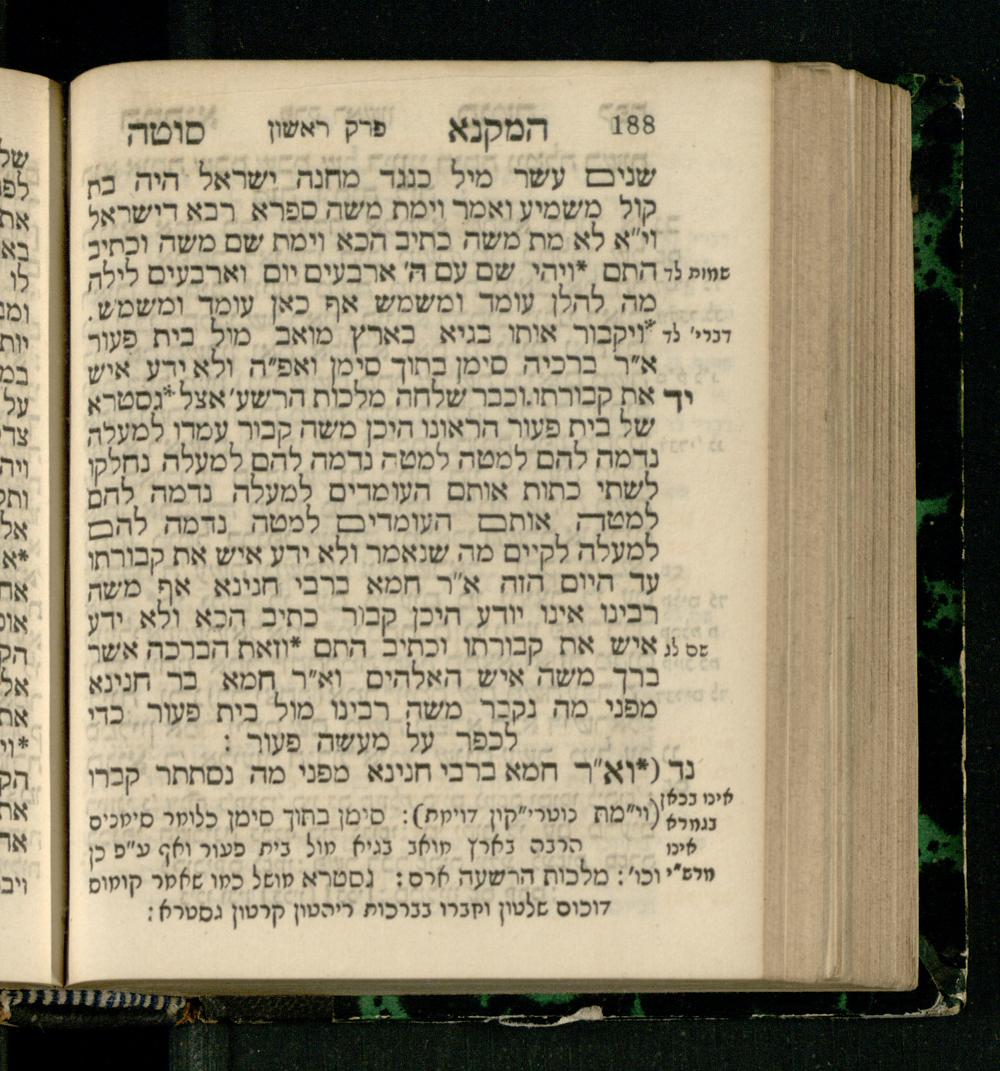 188 המקנא פרק ראשון סוטה
שנים עשר מיל כנגד מחנה ישראל היה בת
קול משמיע ואמר וימת משה ספרא רבא דישראל
וי"א לא מת משה כתיב הכא וימת שם משה וכתיב
שמות לד התם *ויהי שם עם ה' ארבעים יום וארבעים לילה
מה להלן עומד ומשמש אף כאן עומד ומשמש.
דברי' לד *ויקבור אותו בגיא בארץ מואב מול בית פעור
א"ר ברכיה סימן בתוך סימן ואפ"ה ולא ידע איש
יד את קבורתו. וכבר שלחה מלכות הרשע' אצל *גסטרא
של בית פעור הראונו היכן משה קבור עמדו למעלה
נדמה להם למטה למטה נדמה להם למעלה נחלקו
לשתי כתות אותם העומדים למעלה נדמה להם
למטה אותם העומדים למטה נדמה להם
למעלה לקיים מה שנאמר ולא ידע איש את קבורתו
עד היום הזה א"ר חמא ברבי חנינא אף משה
רבינו אינו יודע היכן קבור כתיב הכא ולא ידע
שם לג איש את קבורתו וכתיב התם *וזאת הברכה אשר
ברך משה איש האלהים וא"ר חמא בר חנינא
מפני מה נקבר משה רבינו מול בית פעור כדי
לכפר על מעשה פעור :
נד (*וא"ר חמא ברבי חנינא מפני מה נסתתר קברו
אינו בכאן
בגמרא (וי"מת נוטרי"קין דוימת): סימן בתוך סימן כלומר סימנים
אינו הרבה בארץ מואב בגיא מול בית פעור ואף ע"פ כן
מרש"י וכו': מלכות הרשעה ארם: גסטרא מושל כמו שאמר קומוס
דוכוס שלטון וחברו בברכות ריהטון קרטון גסטרא: